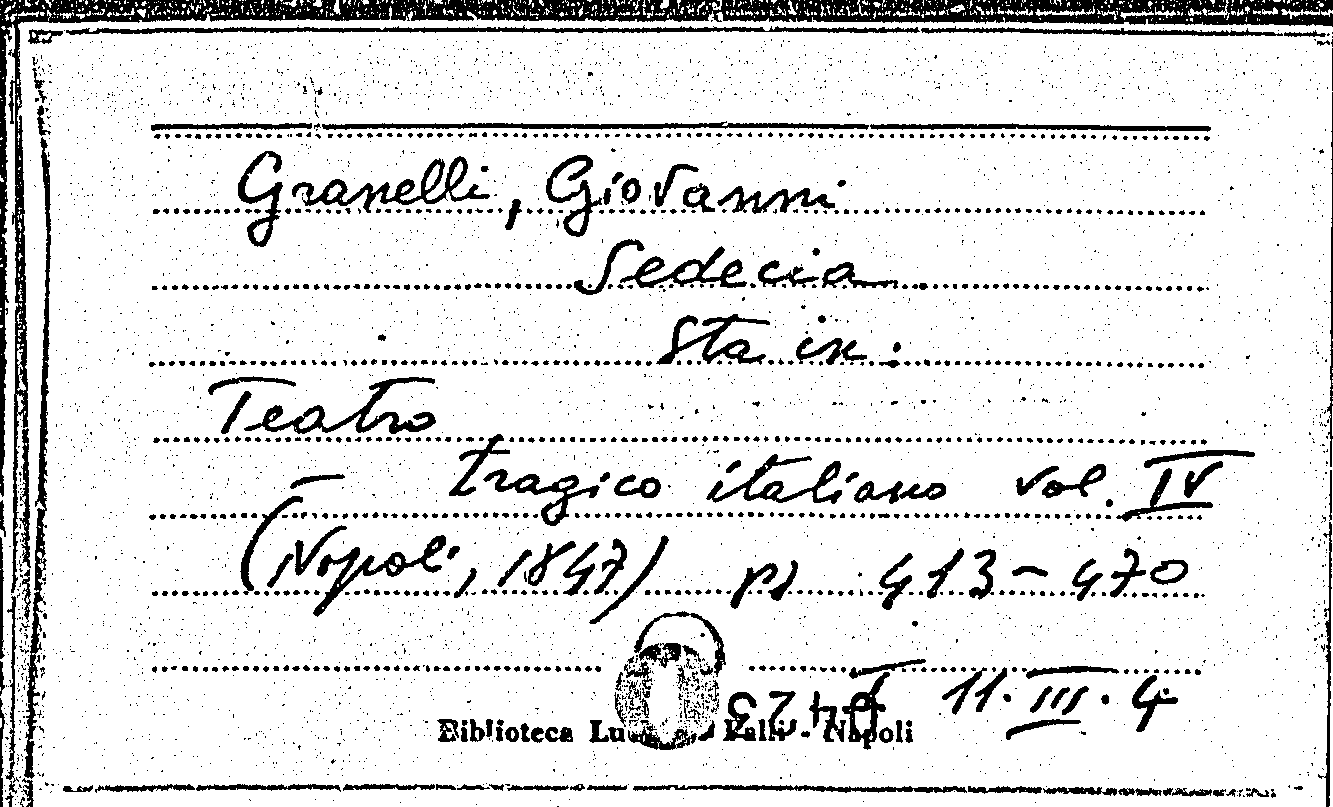 Granelli, Giovanni
Sedecia
Sta in:
Teatro
tragico italiano vol. IV
(Napoli, 1847) pp 413-470
11.III.4
Biblioteca Valli - Napoli